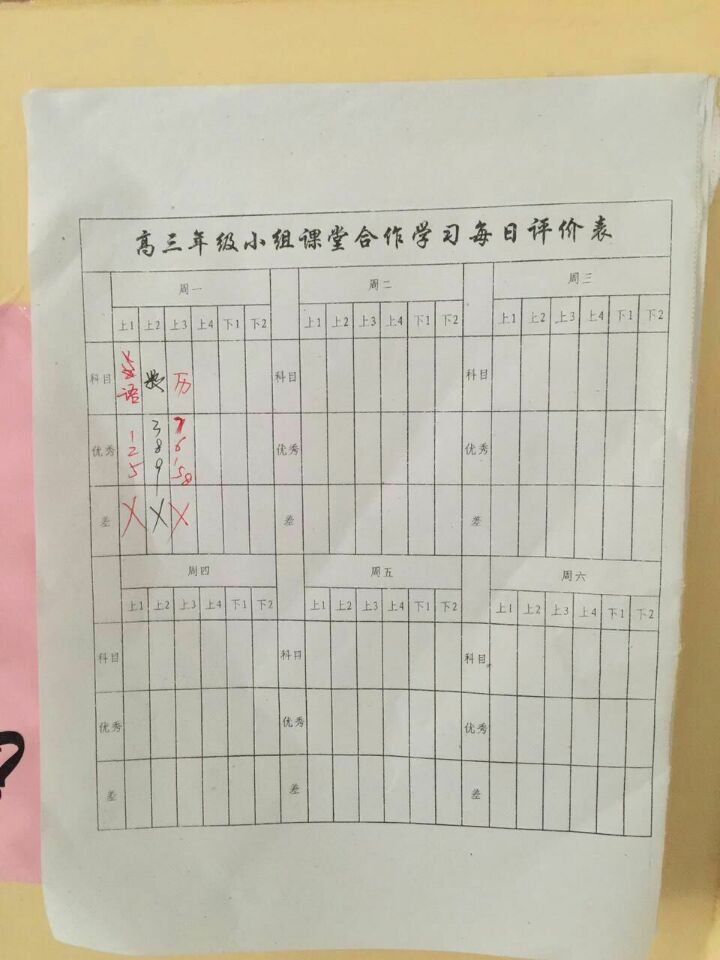 高三年级小组课堂合作学习每日评价表
周一 周二 周三
上1 上2 上3 上4 下1 下2 上1 上2 上3 上4 下1 下2 上1 上2 上3 上4 下1 下2
科目 英语 数 历 科目 科目
优秀 1 2 5 3 8 9 7 6 5 8 优秀 优秀
差 X X X 差 差
周四 周五 周六
上1 上2 上3 上4 下1 下2 上1 上2 上3 上4 下1 下2 上1 上2 上3 上4 下1 下2
科目 科目 科目
优秀 优秀 优秀
差 差 差